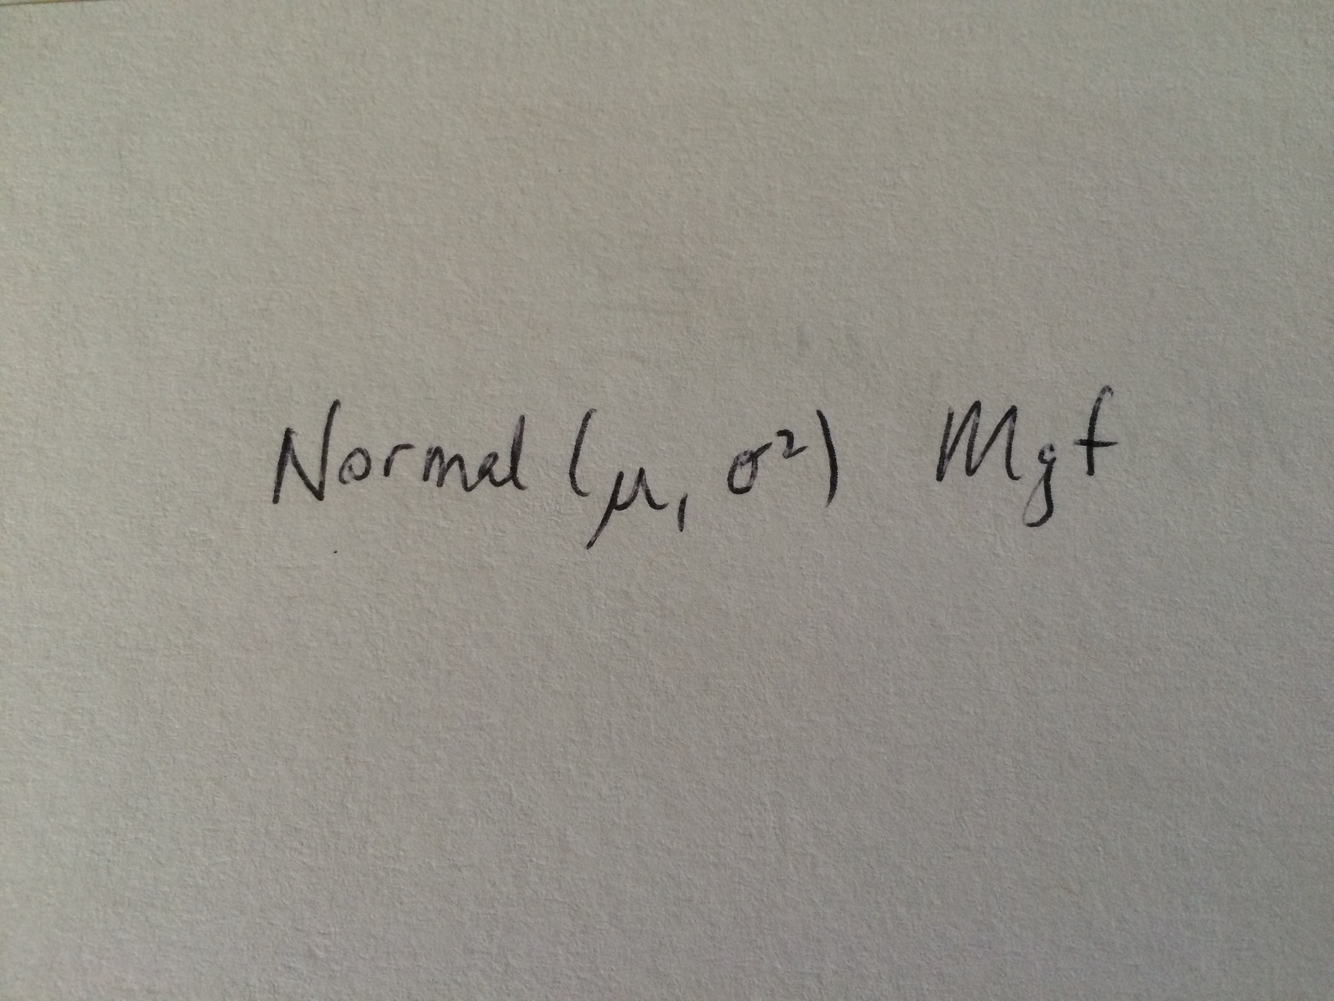 Normal (μ, σ²) Mgf